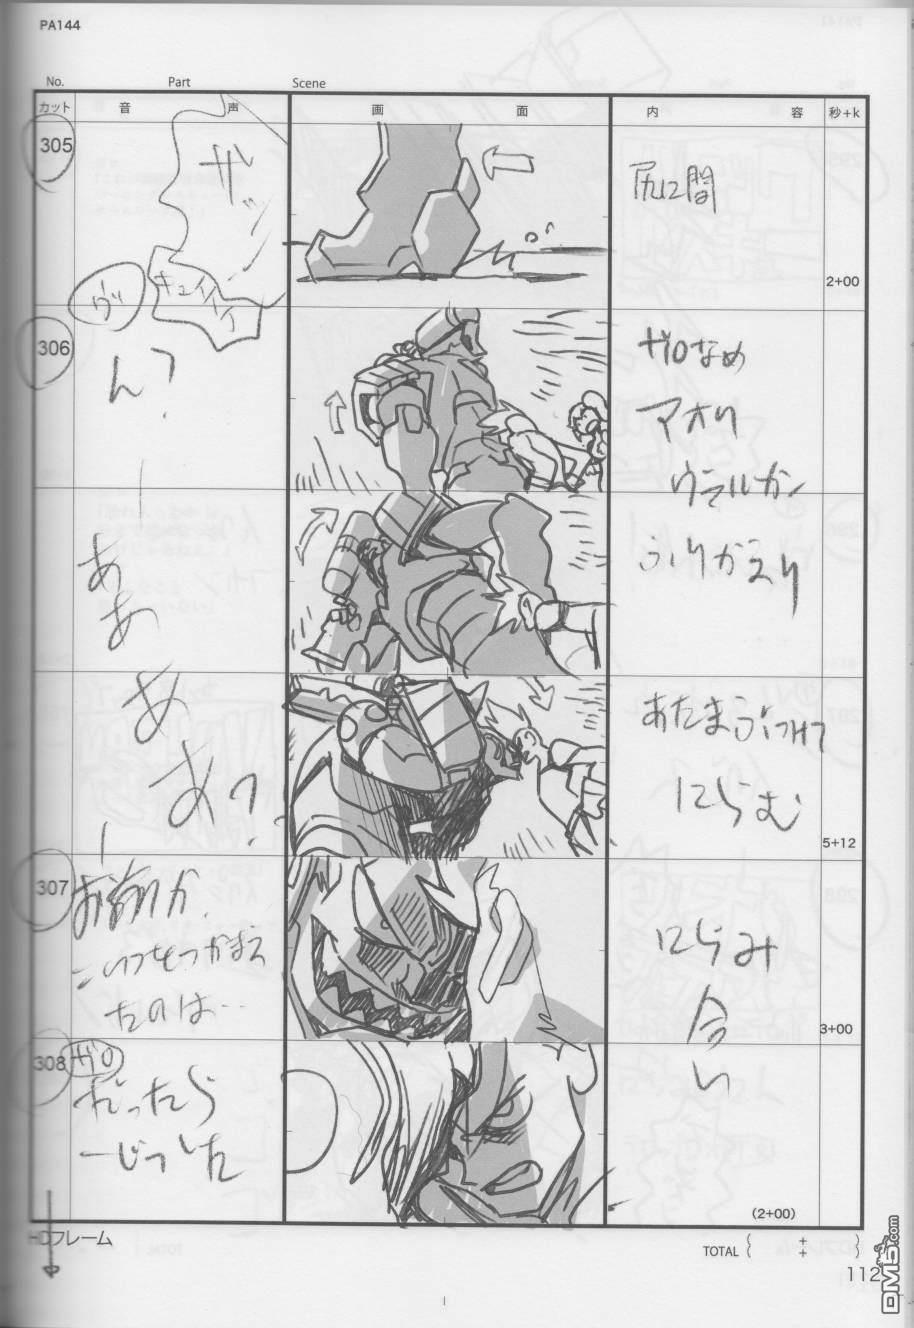 PA144
No. Part Scene
カット 音 声 画 面 内 容 秒+k
305
ザッ
キュイィィ
2+00
306
ん?
ザロなめ
マオリ
ふりかえり
ああ
ああ?
あたまぶつけて
にらむ
5+12
307
お前か
こいつをつかまえ
たのは…
にらみ
合
い
3+00
308
ザロ
だったら
(2+00)
HDフレーム
TOTAL ( + + )
112
DM5.com